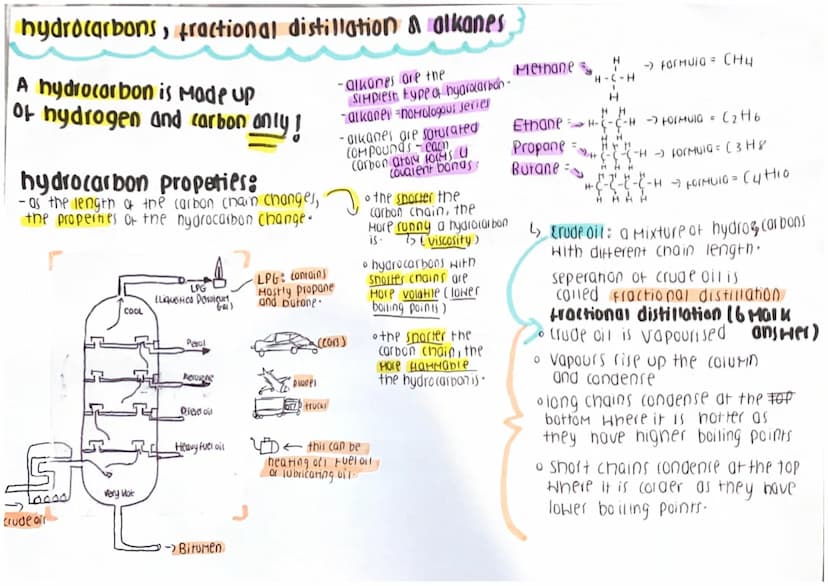 hydrocarbons, fractional distillation & alkanes
A hydrocarbon is made up
of hydrogen and carbon only!
hydrocarbon propeties:
- as the length of the carbon chain changes,
the propeities of the hydrocarbon change.
- alkanes are the
simplest type of hydrocarbon.
- alkanes = homologous series
- alkanes are saturated
compounds - each
carbon atom forms 4
covalent bonds.
Methane → formula = CH4
H
H-C-H
H
Ethane → formula = C2H6
H H
H-C-C-H
Propane → formula = C3H8
Butane → formula = C4H10
o the shorter the
carbon chain, the
more runny a hydrocarbon
is. ↳ (viscosity)
o hydrocarbons with
shorter chains are
more volatile (lower
boiling points)
o the shorter the
carbon chain, the
more flammable
the hydrocarbon is.
↳ crude oil: a mixture of hydrocarbons
with different chain length.
seperation of crude oil is
called fractional distillation
fractional distillation (6 mark
answer)
o crude oil is vapourised
o vapours rise up the column
and condense
o long chains condense at the top
bottom where it is hotter as
they have higher boiling points
o short chains condense at the top
where it is colder as they have
lower boiling points.
LPG
COOL
LPG: contains
mostly propane
and butane.
Petrol
(cars)
Kerosene
planes
Diesel oil
OIL
trucks
Heavy fuel oil
← this can be
heating oil fuel oil
or lubricating oil.
Very Hot
crude oil
→ Bitumen